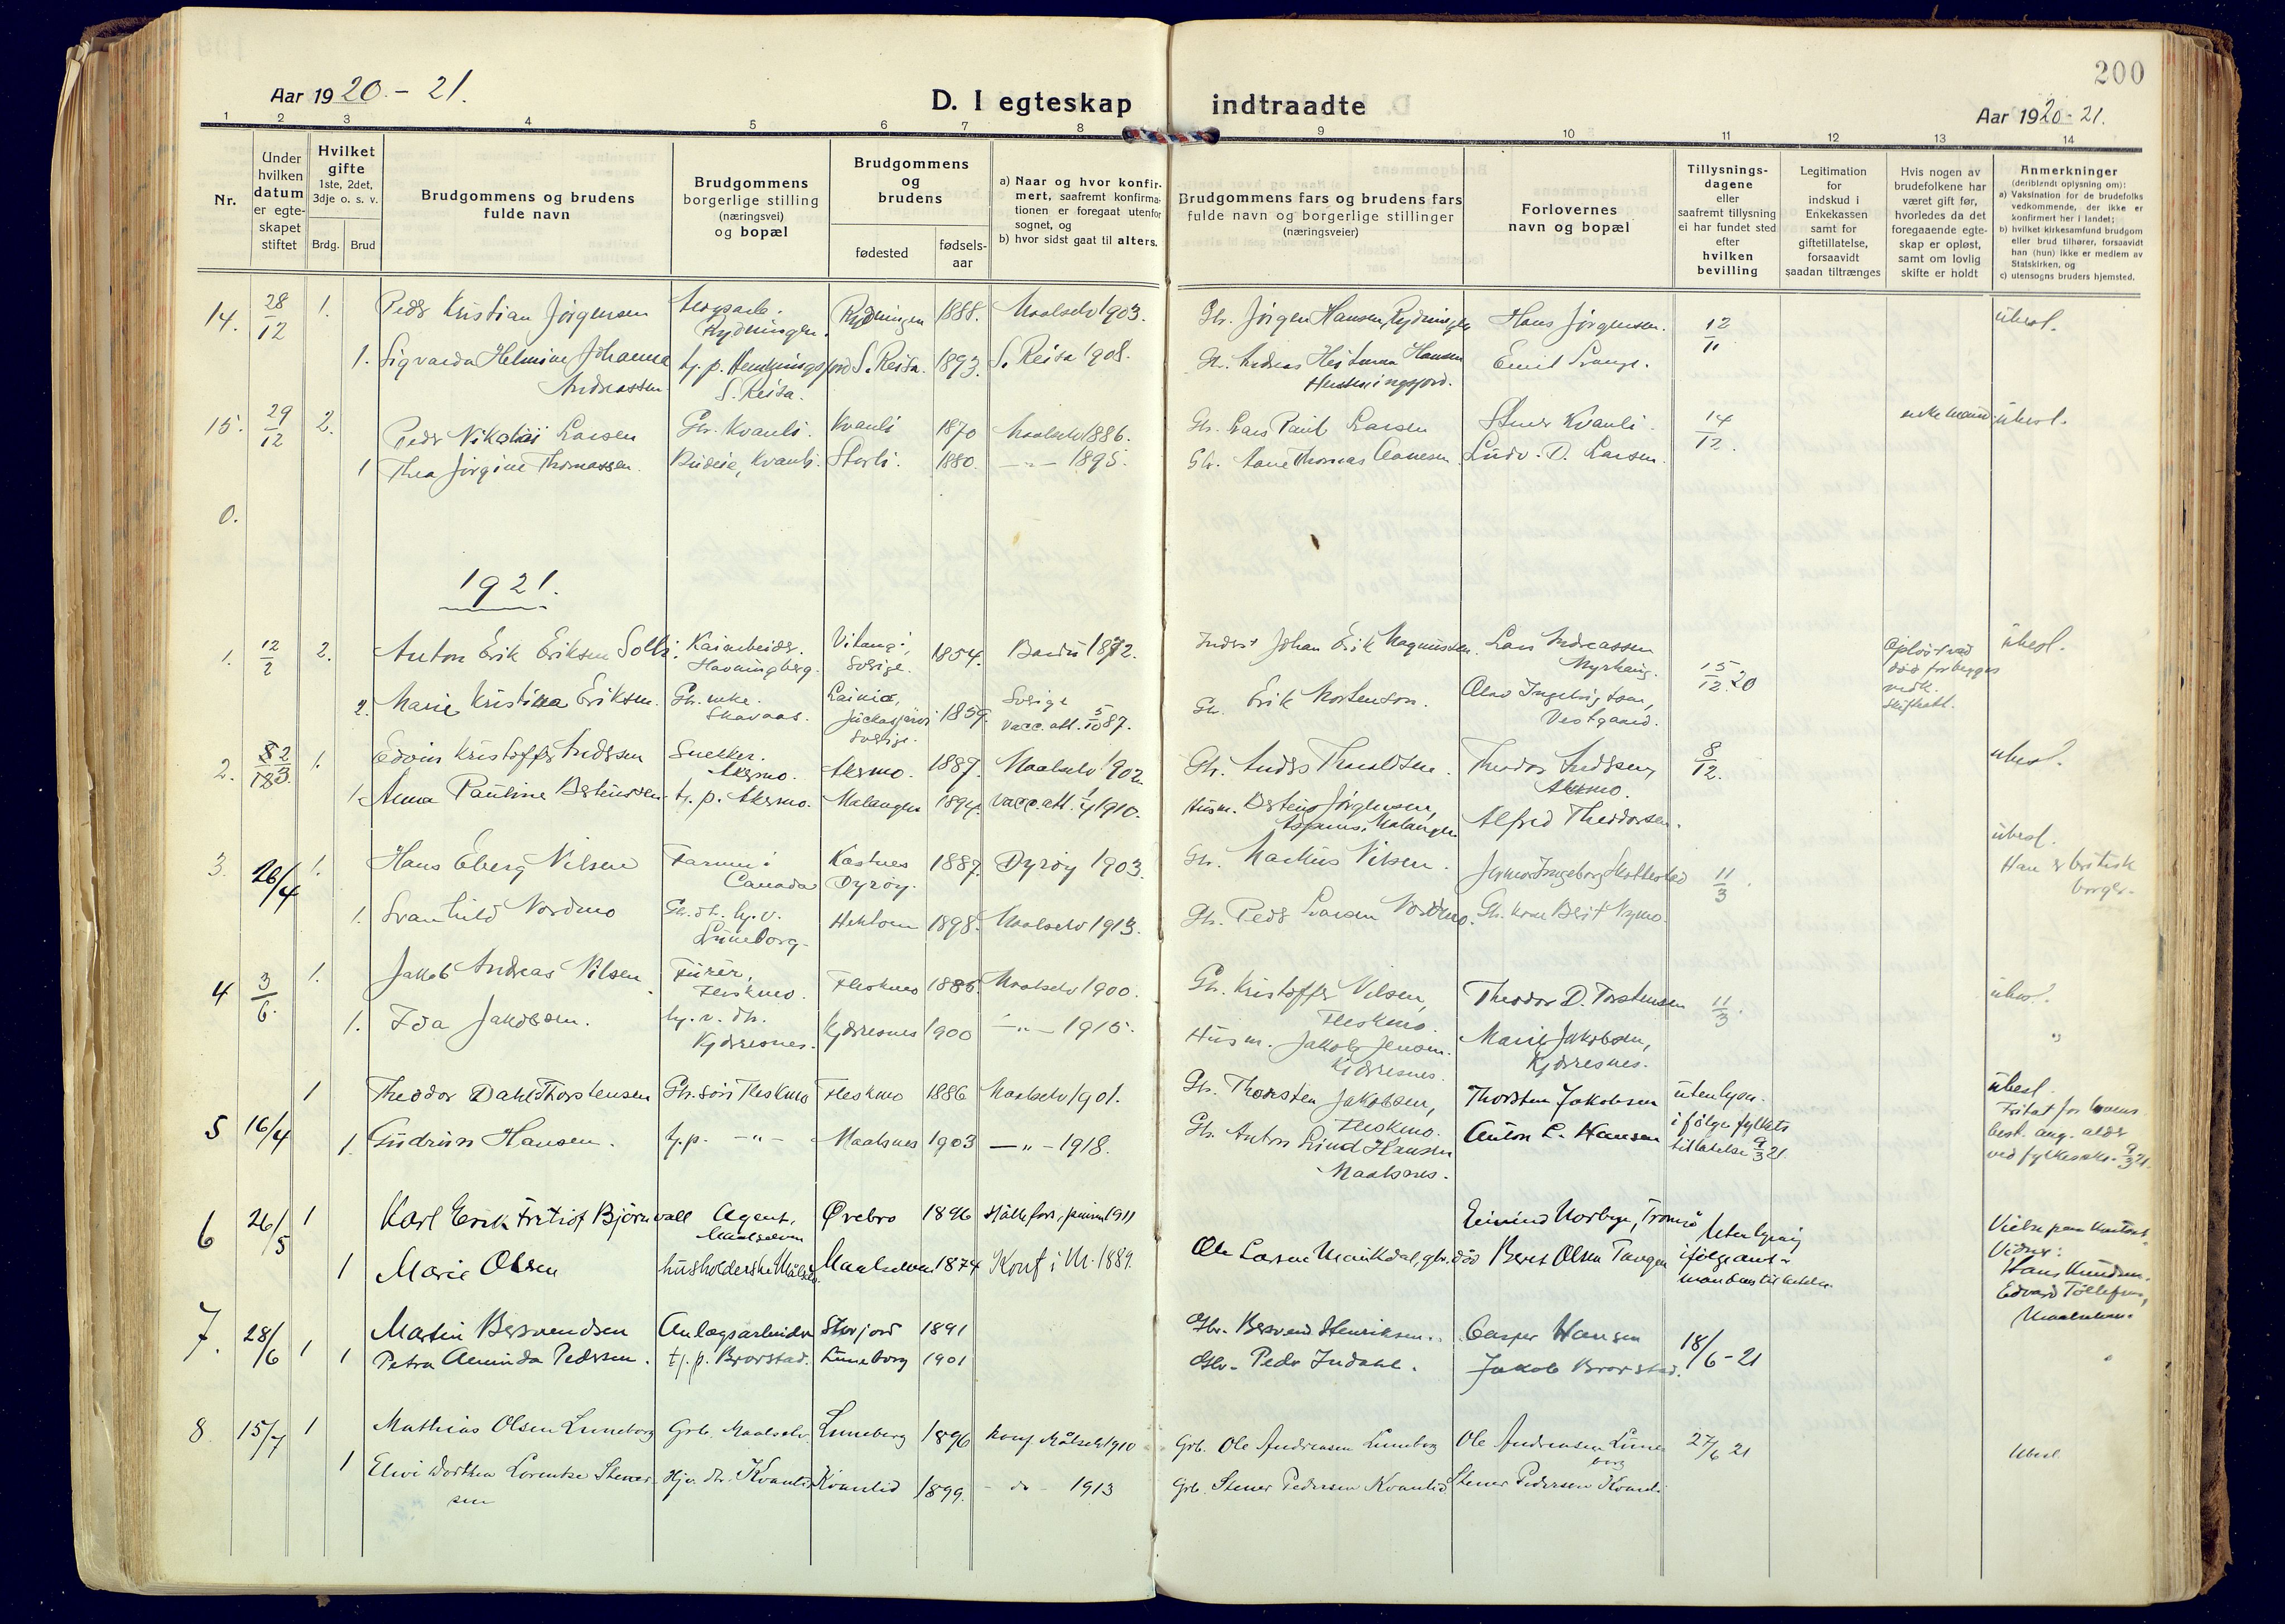 200
Aar 1920-21.
D. I egteskap indtraadte
Aar 1920-21.
1 2 3 4 5 6 7 8 9 10 11 12 13 14
Nr.
Under hvilken datum er egte-skapet stiftet
Hvilket gifte 1ste, 2det, 3dje o. s. v.
Brdg. Brud
Brudgommens og brudens fulde navn
Brudgommens borgerlige stilling (næringsvei) og bopæl
Brudgommens og brudens
fødested
fødsels-aar
a) Naar og hvor konfir-mert, saafremt konfirma-tionen er foregaat utenfor sognet, og
b) hvor sidst gaat til alters.
Brudgommens fars og brudens fars fulde navn og borgerlige stillinger (næringsveier)
Forlovernes navn og bopæl
Tillysnings-dagene eller saafremt tillysning ei har fundet sted efter hvilken bevilling
Legitimation for indskud i Enkekassen samt for giftetillatelse, forsaavidt saadan tiltrænges
Hvis nogen av brudefolkene har været gift før, hvorledes da det foregaaende egte-skap er opløst, samt om lovlig skifte er holdt
Anmerkninger (deriblendt oplysning om):
a) Vaksination for de brudefolks vedkommende, der ikke er konfirmert her i landet;
b) hvilket kirkesamfund brudgom eller brud tilhører, forsaavidt han (hun) ikke er medlem av Statskirken, og
c) utensogns bruders hjemsted.
14. 28/12 1. Peder Kristian Jørgensen Rydningen. Rydningen 1888. Maalselv 1903. Gbr. Jörgen Hansen, Rydningen Hans Jørgensen. 12/11 übesl.
1. Sigvarda Helmine Johanna Andreassen tj. p. Henningsfjord S. Reisa. S. Reisa. 1893. S. Reisa 1908. Gbr. Andreas Heitman Hansen Henningsfjord. Emil Lange.
15. 29/12 2. Peder Nikolai Larsen Gbr. Kvanli. Kvanli 1870 Maalselv 1886. Gbr. Lars Paul Larsen Stener Kvanli. 14/12. enkemand übesl.
1 Thea Jørgine Thomassen. Budeie, Kvanli. Storli. 1880. —"— 1895. Gbr. Aane Thomas Aanesen Ludv. D. Larsen.
0.
1921.
1. 12/2 2. Anton Erik Eriksen Solli. Kaiarbeider. Havningberg. Vitangi, Sverige. 1854. Bardu 1872. Inderst Johan Erik Magnussen. Lars Andreassen Myrhaug. 15/12.20 opløst ved død for begges vedk. skifteatt. übesl.
2. Marie Kristina Eriksen. Gbr. enke. Skavaas. Lainio, Juckasjärvi Sverige. 1859. Sverige vacc. att. 5/10 87. Gbr. Erik Mortenson. Olav Ingebrigtsen, Vestgaard.
2. 1. Edvin Kristoffer Andersen Snekker. Akermo. Akermo. 1887. Maalselv 1902. Gbr. Anders Thoraldsen. Theodor Andersen, Akermo. 8/12. übesl.
1. Anna Pauline Berteussen tj. p. Akermo. Malangen 1894. vacc. att. 1910. Husm. Berteus Jörgensen, Malangen Alfred Theodorsen.
3. 26/4 1. Hans Eberg Nilsen Farmer i Canada Kastnes Dyrøy. 1887. Dyrøy 1903. Gbr. Markus Nilsen. 11/3. übesl. Han er britisk borger.
1. Svanhild Nordmo Gbr. dt. hj. v. Luneborg. Heklom 1898. Maalselv 1913. Gbr. Peder Larsen Nordmo. Gbr. kone Berit Nymo.
4 3/6. 1. Jakob Andreas Nilsen Furer, Fleskmo. Fleskmo 1886. Maalselv 1900. Gbr. Kristoffer Nilsen, Fleskmo. Theodor D. Torstensen 11/3. übesl.
1. Ida Jakobsen. hj. v. dtr. Kjerresnes. Kjerresnes 1900 —"— 1915. Husm. Jakob Jensen. Kjerresnes. Marie Jakobsen, Kjerresnes. "
5 16/4 1 Theodor Dahl Thorstensen Gbr. sön Fleskmo Fleskmo 1886 Maalselv 1901. Gbr. Thorsten Jakobsen, Fleskmo. Thorsten Jakobsen uten lysn. i følge fylkets tillatelse 9/3 21. übesl. Fritat for lovens best. ang. alder ved fylkesskr. 9/3 21.
1. Gudrun Hansen. tj. p. —"— Maalsnes 1903 —"— 1918. Gbr. Anton Lind Hansen Maalsnes. Anton L. Hansen
6 26/5 1 Karl Erik Fritiof Björnvall Agent, Maalselven Ørebro 1896 Hällefors, 1911 Eivind Norbye, Tromsø Uten lysning ifølge amtmandens tillatelse. Vielse paa kontoret. Vidner: Hans Knudsen, Edvard Tollefsen, Maalselven.
1 Marie Olsen husholderske Målselv. Maalselven 1874 Konf i M. 1889. Ole Larsen Mauskdal, gbr. död Beret Olsen Tangen
7. 28/6 1 Martin Bersvendsen Anlægsarbeider Storjord 1891 Gbr. Bersvend Henriksen. Casper Hansen 18/6-21
1 Petra Aminda Pedersen. tj. p. Brorstad. Luneborg 1901 Gbr. Peder Indahl. Jakob Brorstad.
8. 15/7 1 Mathias Olsen Luneborg Grb. Maalselv. Luneborg 1896 konf Målselv 1910 Grb. Ole Andreasen Luneborg Ole Andreasen Luneborg 27/6 21 Ubesl.
1 Elvi Dorthea Lorentse Stenersen Hjv. dtr. Kvanlid Kvanlid 1899. - do - 1913 Grb. Stener Pedersen Kvanlid Stener Pedersen Kvanli